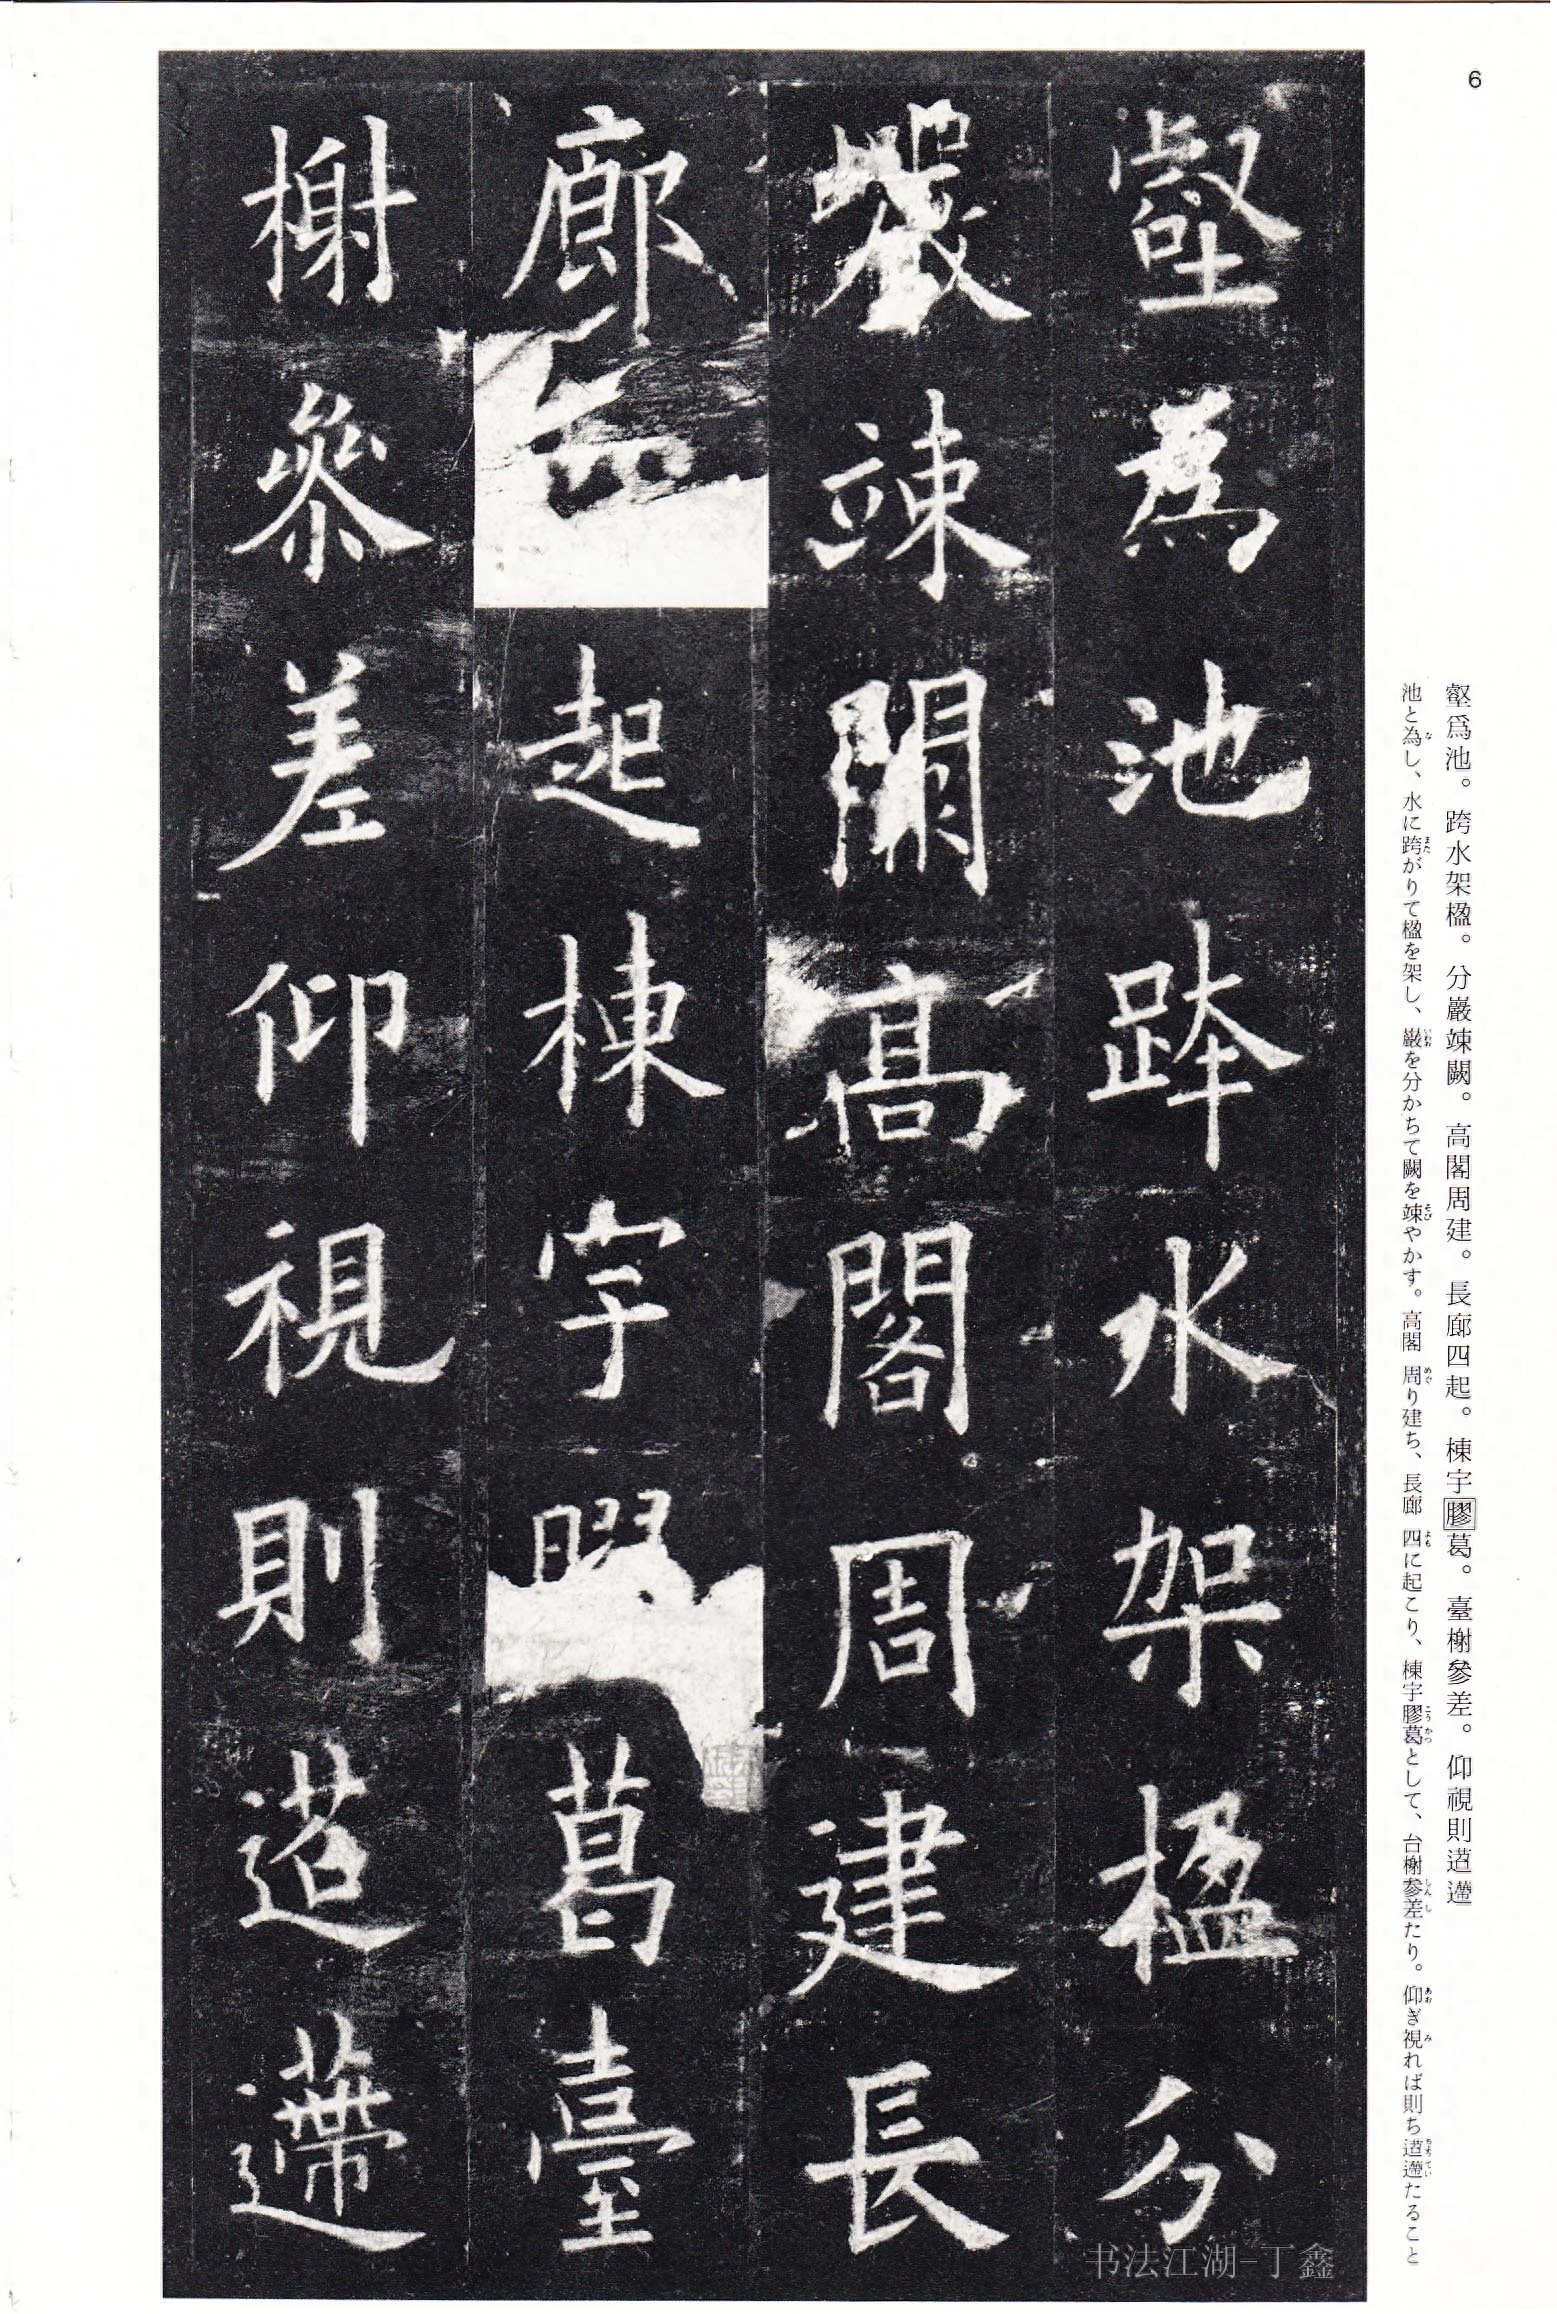 6
壑爲池。跨水架楹。分巖竦闕。高閣周建。長廊四起。棟宇膠葛。臺榭參差。仰視則迢遰
池と為し、水に跨がりて楹を架し、巌を分かちて闕を竦やかす。高閣 周り建ち、長廊 四に起こり、棟宇膠葛として、台榭参差たり。仰ぎ視れば則ち迢遰たること
壑爲池跨水架楹分
巖竦闕高閣周建長
廊四起棟宇膠葛臺
榭參差仰視則迢遰
书法江湖-丁鑫